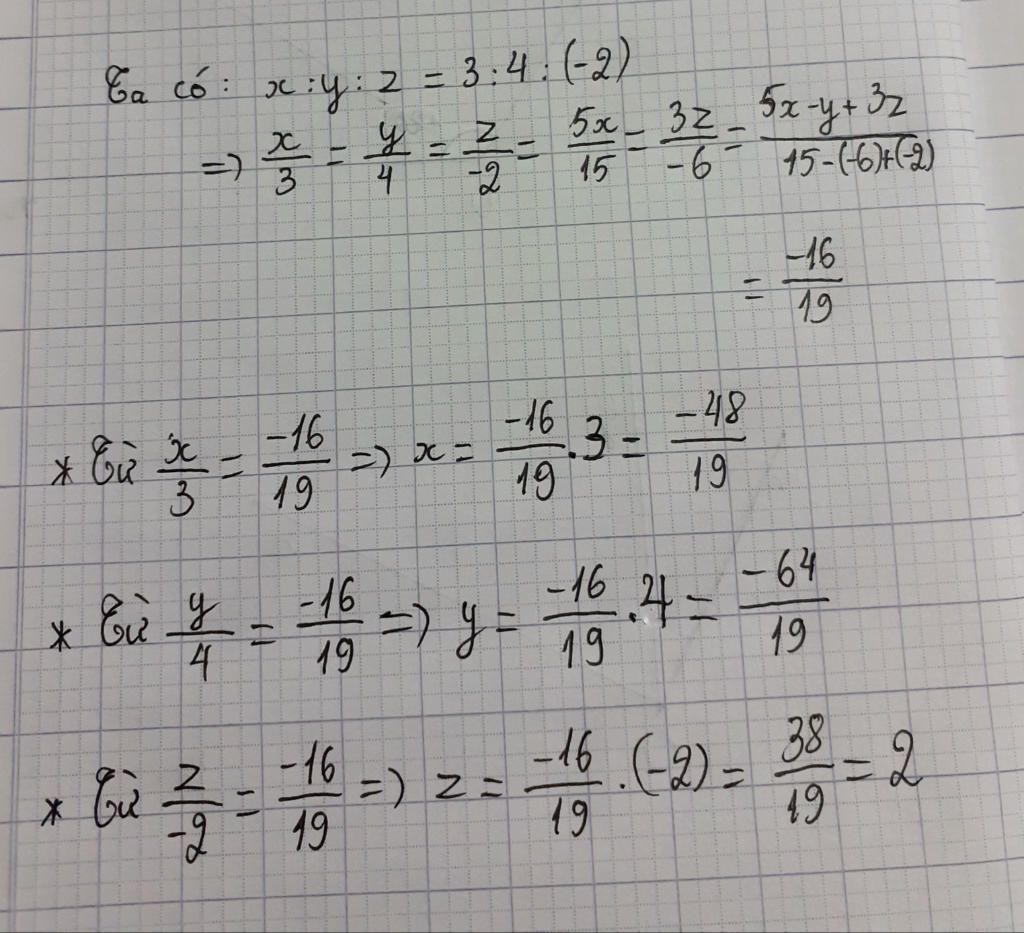 Ta có: x : y : z = 3 : 4 : (-2)
=> x/3 = y/4 = z/-2 = 5x/15 = 3z/-6 = (5x - y + 3z)/(15 - (-6) + (-2))
= -16/19
* Từ x/3 = -16/19 => x = -16/19 . 3 = -48/19
* Từ y/4 = -16/19 => y = -16/19 . 4 = -64/19
* Từ z/-2 = -16/19 => z = -16/19 . (-2) = 38/19 = 2